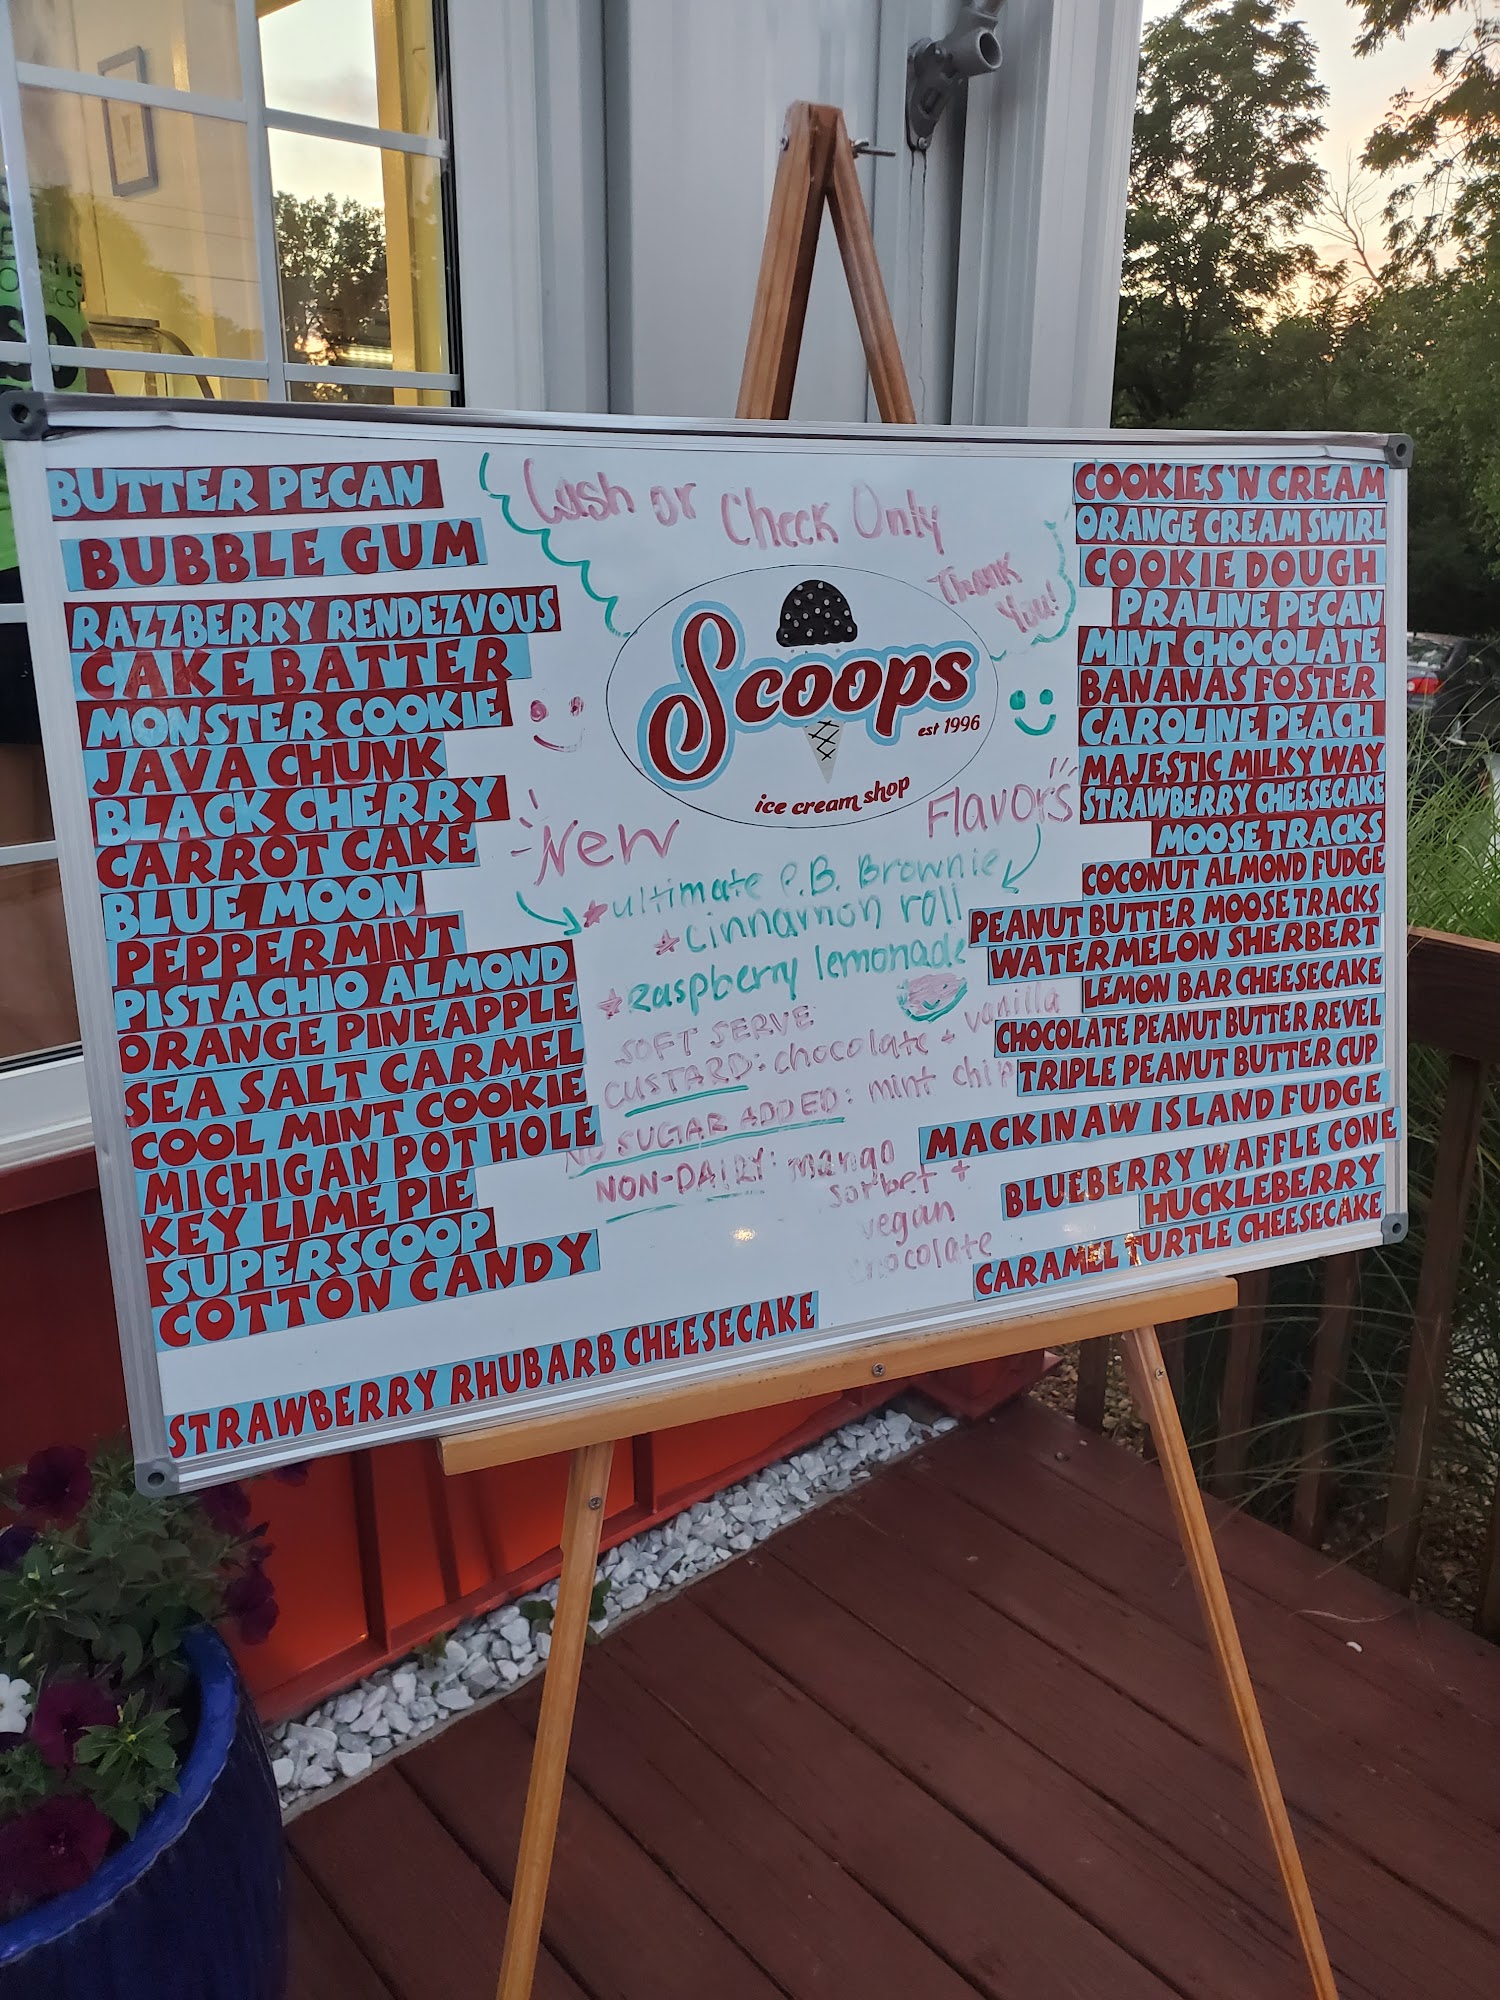 BUTTER PECAN
BUBBLE GUM
RAZZBERRY RENDEZVOUS
CAKE BATTER
MONSTER COOKIE
JAVA CHUNK
BLACK CHERRY
CARROT CAKE
BLUE MOON
PEPPERMINT
PISTACHIO ALMOND
ORANGE PINEAPPLE
SEA SALT CARMEL
COOL MINT COOKIE
MICHIGAN POT HOLE
KEY LIME PIE
SUPERSCOOP
COTTON CANDY
STRAWBERRY RHUBARB CHEESECAKE
Cash or Check Only
Thank
You!
Scoops
est 1996
ice cream shop
New Flavors
ultimate P.B. Brownie
cinnamon roll
Raspberry lemonade
SOFT SERVE
CUSTARD: chocolate + vanilla
NO SUGAR ADDED: mint chip
NON-DAIRY: mango
sorbet +
vegan
chocolate
COOKIES 'N CREAM
ORANGE CREAM SWIRL
COOKIE DOUGH
PRALINE PECAN
MINT CHOCOLATE
BANANAS FOSTER
CAROLINE PEACH
MAJESTIC MILKY WAY
STRAWBERRY CHEESECAKE
MOOSE TRACKS
COCONUT ALMOND FUDGE
PEANUT BUTTER MOOSE TRACKS
WATERMELON SHERBERT
LEMON BAR CHEESECAKE
CHOCOLATE PEANUT BUTTER REVEL
TRIPLE PEANUT BUTTER CUP
MACKINAW ISLAND FUDGE
BLUEBERRY WAFFLE CONE
HUCKLEBERRY
CARAMEL TURTLE CHEESECAKE